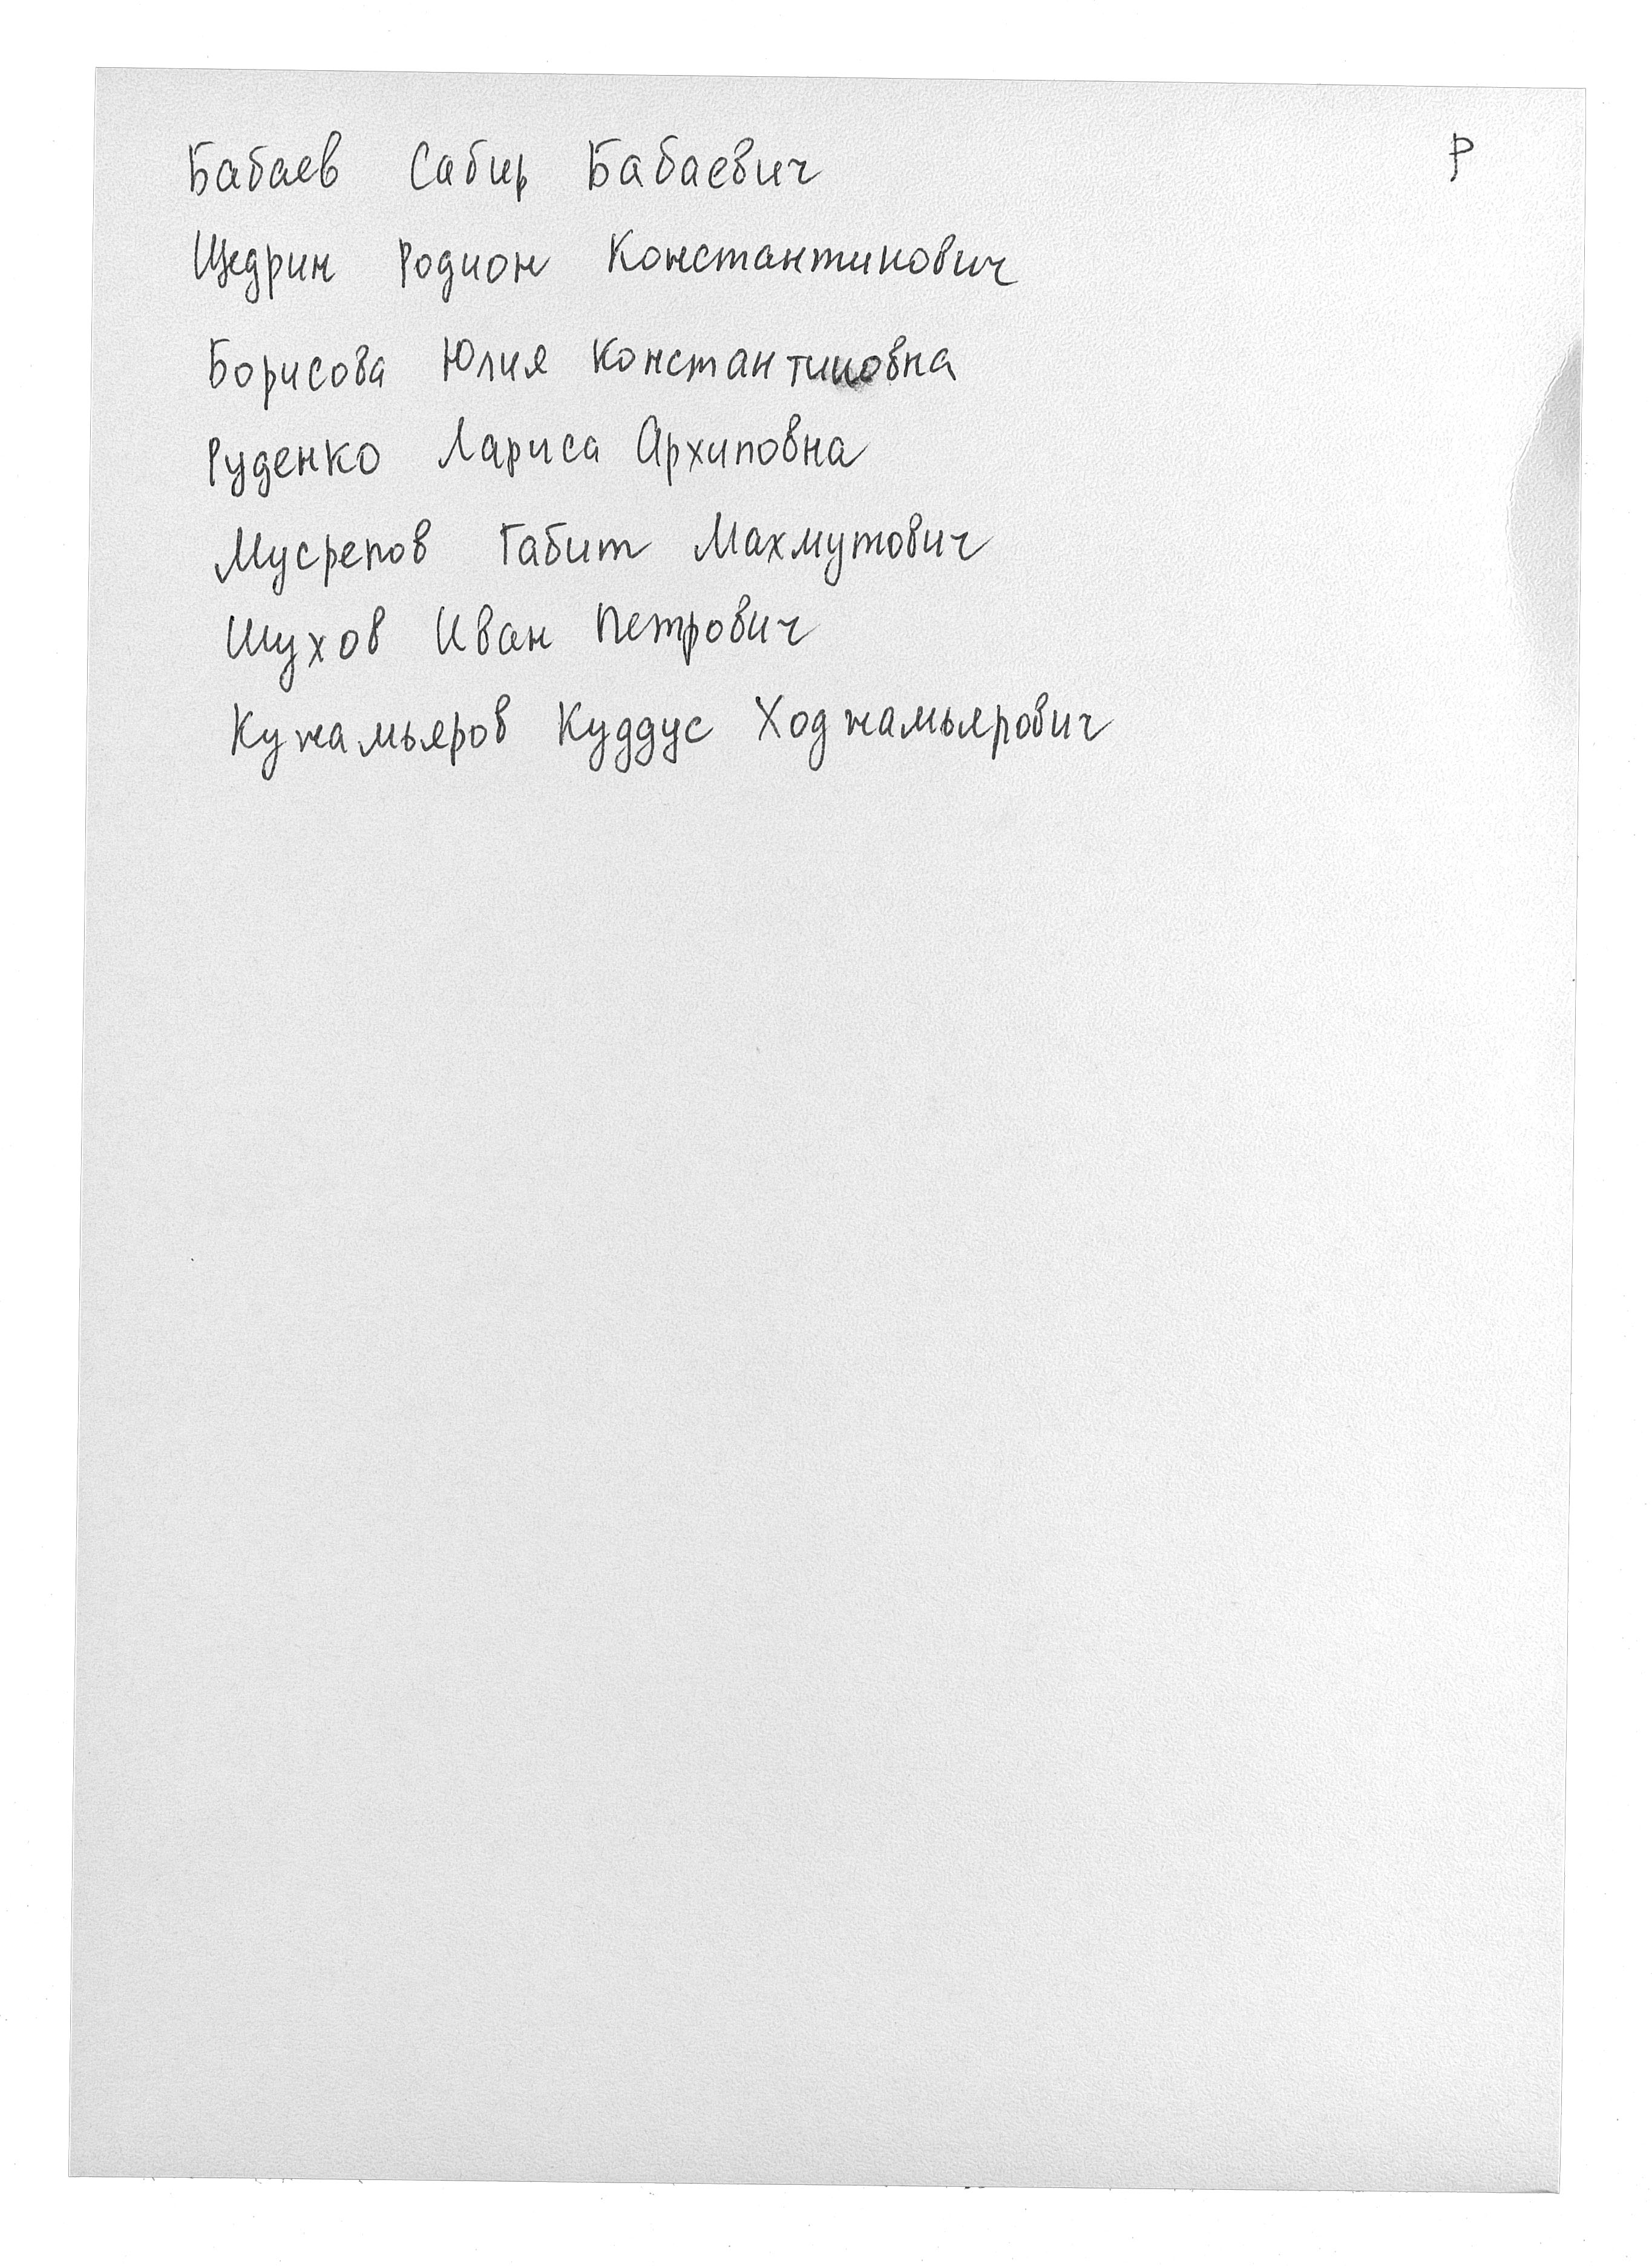 Бабаев Сабир Бабаевич Р
Щедрин Родион Константинович
Борисова Юлия Константиновна
Руденко Лариса Архиповна
Мусрепов Габит Махмутович
Шухов Иван Петрович
Кужамьяров Куддус Ходжамьярович